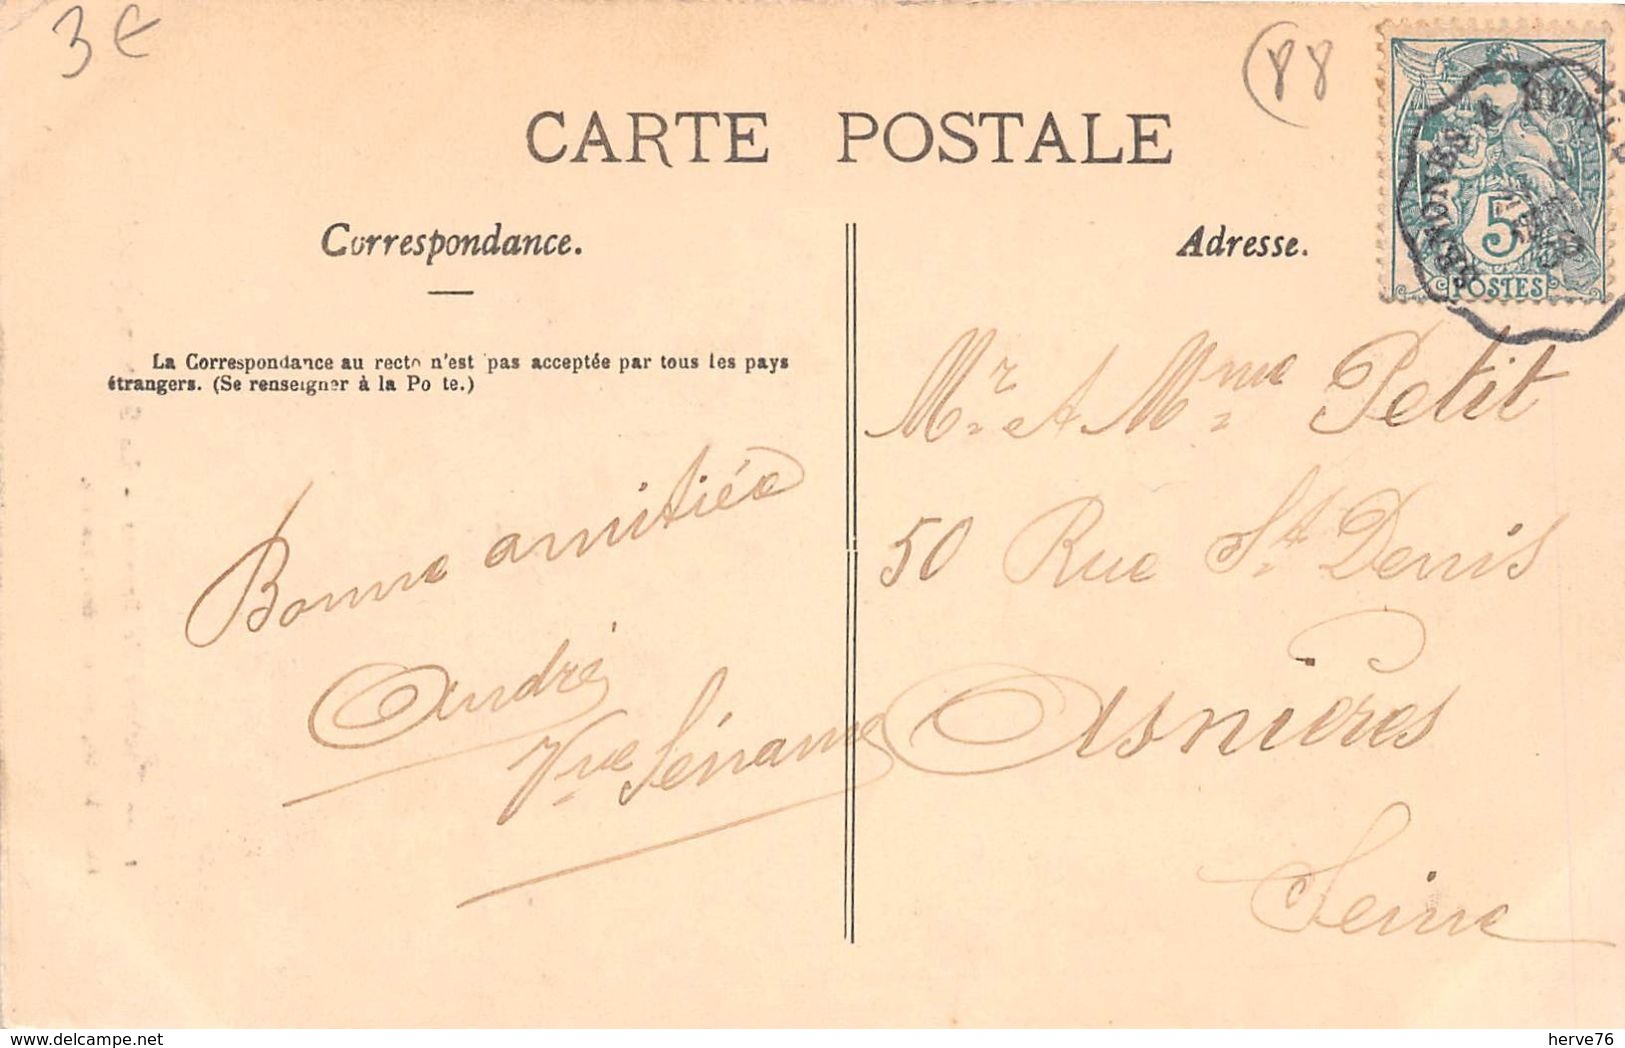 3 €
88
CARTE POSTALE
Correspondance.
La Correspondance au recto n'est pas acceptée par tous les pays
étrangers. (Se renseigner à la Po te.)
Bonne amitiée
André
Vve
Adresse.
5
POSTES
Mr A Mme Petit
50 Rue St Denis
Asnières
Seine
delcampe.net
herve76